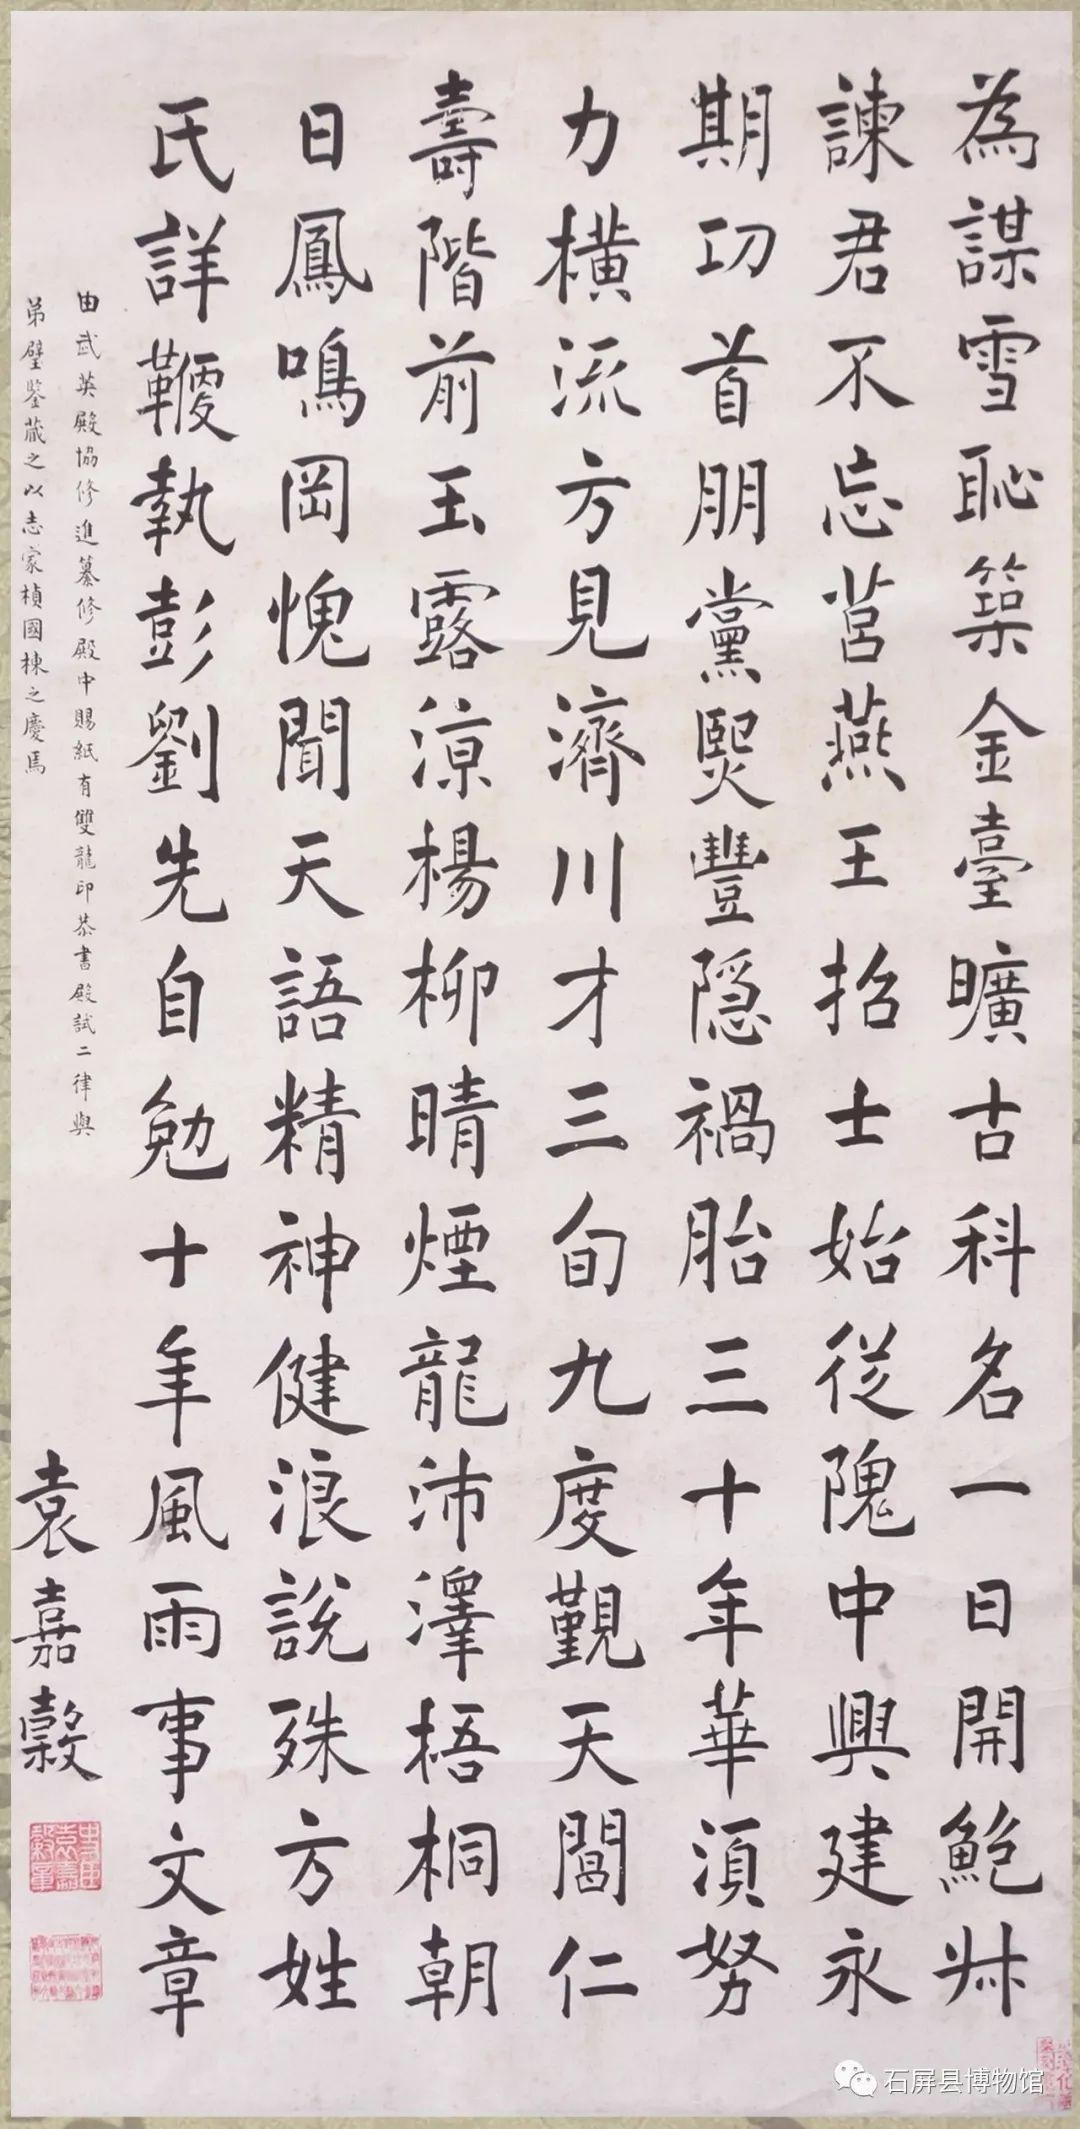 為謀雪恥築金臺曠古科名一日開鮑叔
諫君不忘莒燕王招士始從隗中興建永
期功首朋黨熙豐隱禍胎三十年華須努
力橫流方見濟川才三旬九度覲天閶仁
壽階前玉露涼楊柳晴煙龍沛澤梧桐朝
日鳳鳴岡愧聞天語精神健浪說殊方姓
氏詳鞭執彭劉先自勉十年風雨事文章
由武英殿協修進纂修殿中賜紙有雙龍印恭書殿試二律與
弟璧鑒藏之以志家楨國棟之慶焉
袁嘉穀
石屏县博物馆